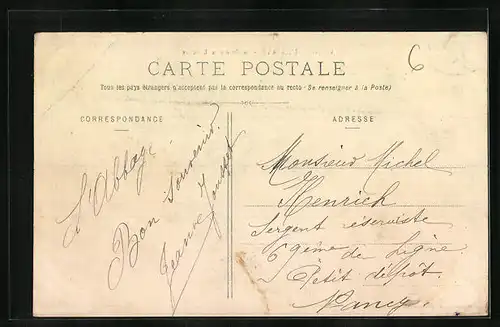 6
CARTE POSTALE
Tous les pays étrangers n'acceptent pas la correspondance au recto - Se renseigner à la Poste)
CORRESPONDANCE
L'Abbaye
Bon Souvenir
Jeanne
ADRESSE
Monsieur Michel
Henrich
Sergent réserviste
69ème de Ligne
Petit dépôt
Nancy.